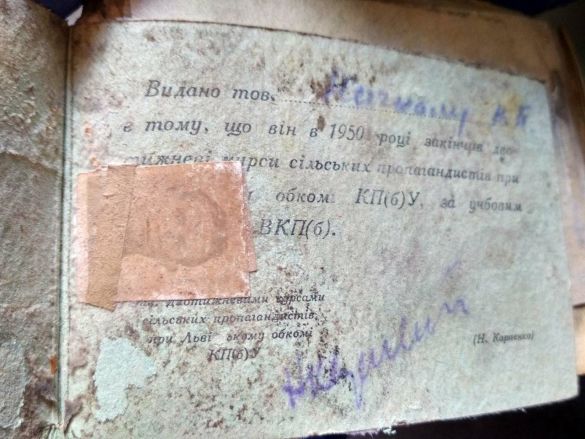 Видано тов.
в тому, що він в 1950 році закінчив дво-
тижневі курси сільських пропагандистів при
обкомі КП(б)У, за учбовим
ВКП(б).
Двотижневими курсами
сільських пропагандистів
при Льві ському обкомі
КП(б)У
(Н. Карпенко)